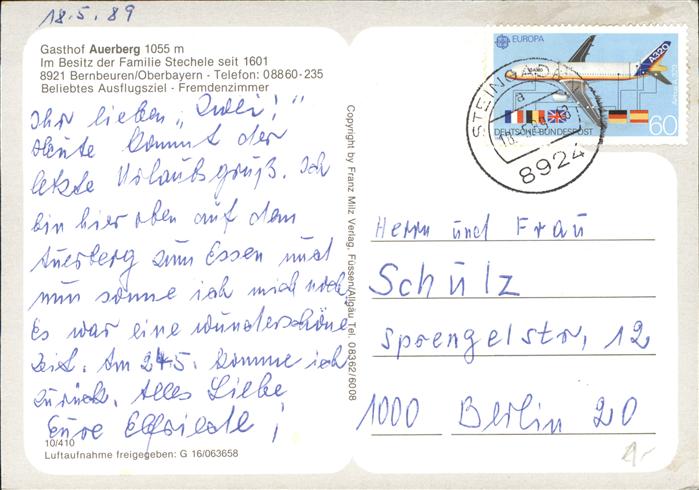 18.5.89
Gasthof Auerberg 1055 m
Im Besitz der Familie Stechele seit 1601
8921 Bernbeuren/Oberbayern - Telefon: 08860-235
Beliebtes Ausflugsziel - Fremdenzimmer
Ihr lieben „Zwei!"
Heute kommt der
letzte Urlaubsgruß. Ich
bin hier oben auf dem
Auerberg zum Essen und
nun sonne ich mich noch.
Es war eine wunderschöne
Zeit. Am 24.5. komme ich
zurück. Alles Liebe
Eure Elfriede!
10/410
Luftaufnahme freigegeben: G 16/063658
Copyright by Franz Milz Verlag, Füssen/Allgäu Tel. 08362/6008
EUROPA
A320
Airbus A 320
DEUTSCHE BUNDESPOST
60
STEINGADEN
a
8924
Herrn und Frau
Schulz
Sprengelstr. 12
1000 Berlin 20